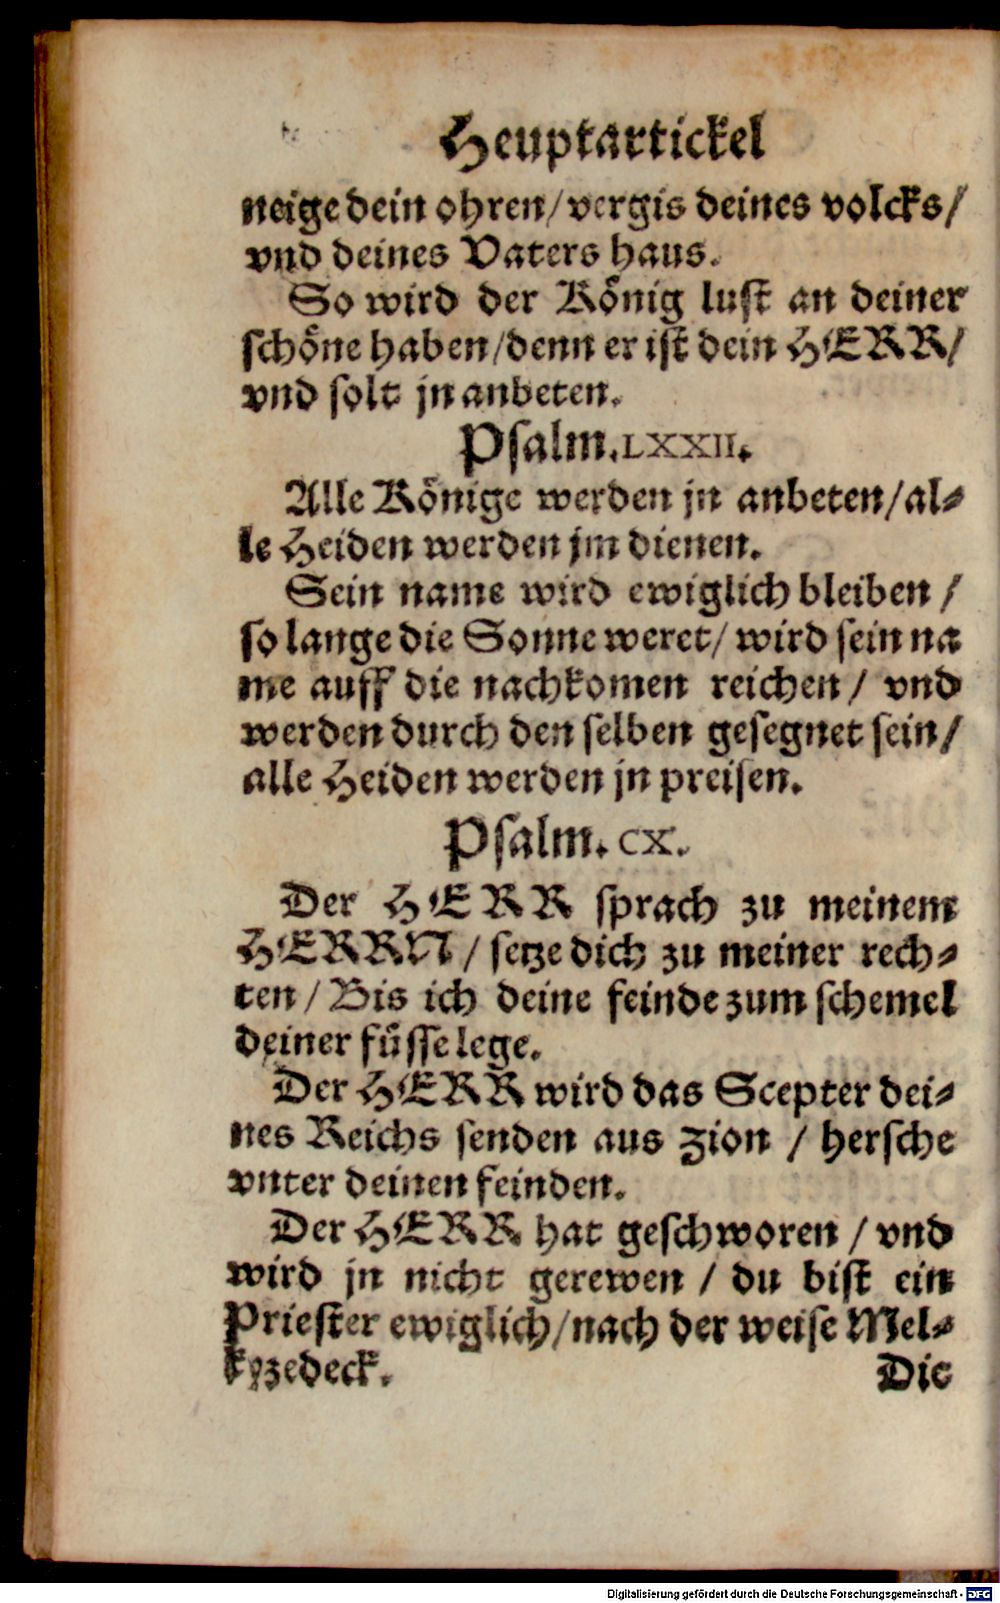 Heuptartickel
neige dein ohren/vergis deines volcks/
vnd deines Vaters haus.
So wird der König lust an deiner
schöne haben/denn er ist dein HERR/
vnd solt jn anbeten.
Psalm.LXXII.
Alle Könige werden jn anbeten/al-
le Heiden werden jm dienen.
Sein name wird ewiglich bleiben /
so lange die Sonne weret/ wird sein na
me auff die nachkomen reichen / vnd
werden durch den selben gesegnet sein/
alle Heiden werden jn preisen.
Psalm. CX.
Der HERR sprach zu meinem
HERRN / setze dich zu meiner rech-
ten / Bis ich deine feinde zum schemel
deiner füsse lege.
Der HERR wird das Scepter dei-
nes Reichs senden aus Zion / hersche
vnter deinen feinden.
Der HERR hat geschworen / vnd
wird jn nicht gerewen / du bist ein
Priester ewiglich/nach der weise Mel-
kyzedeck. Die
Digitalisierung gefördert durch die Deutsche Forschungsgemeinschaft - DFG